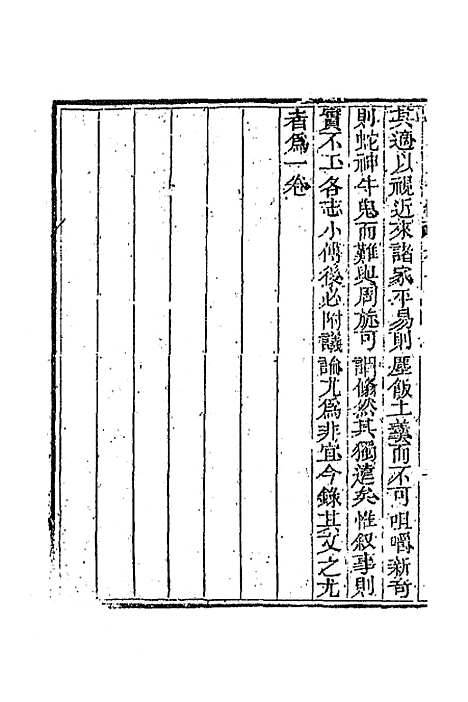 其適以視近來諸家平易則塵飯土羹而不可咀嚼新奇
則蛇神牛鬼而難與周旋可謂翛然其獨遠矣惟叙事則
實不工各志小傳後必附議論尤爲非宜今錄其文之尤
者爲一卷